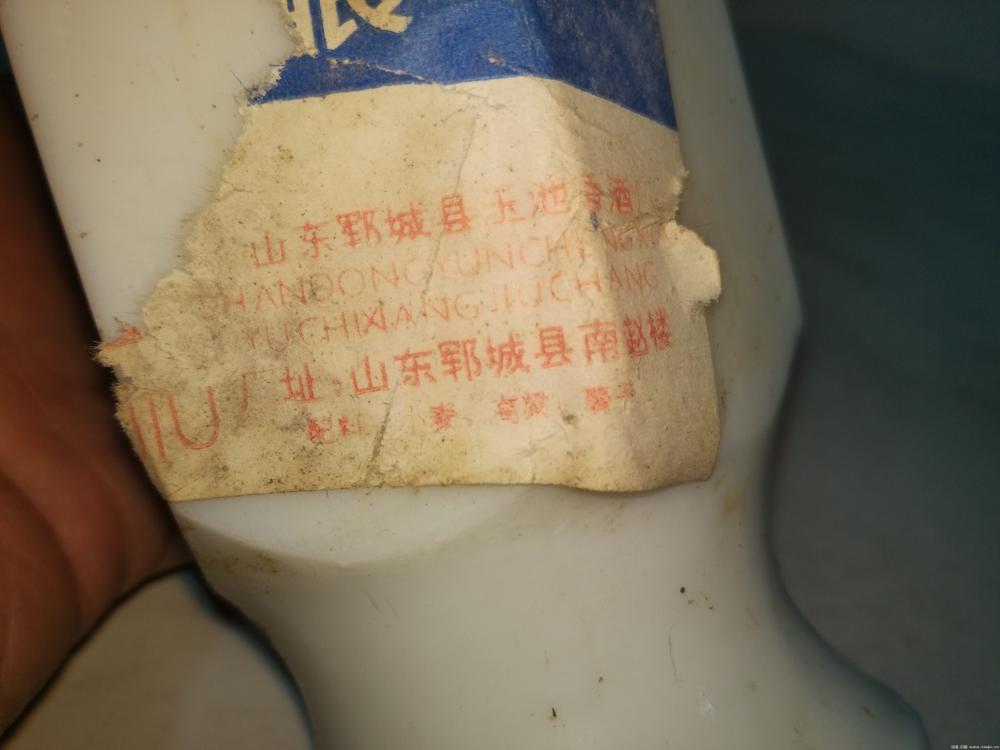 山东郓城县玉池香酒
HANDONGYUNCHENG
YUCHIXIANGJIUCHANG
厂址：山东郓城县南赵楼
JIU
配料：小麦、高粱、